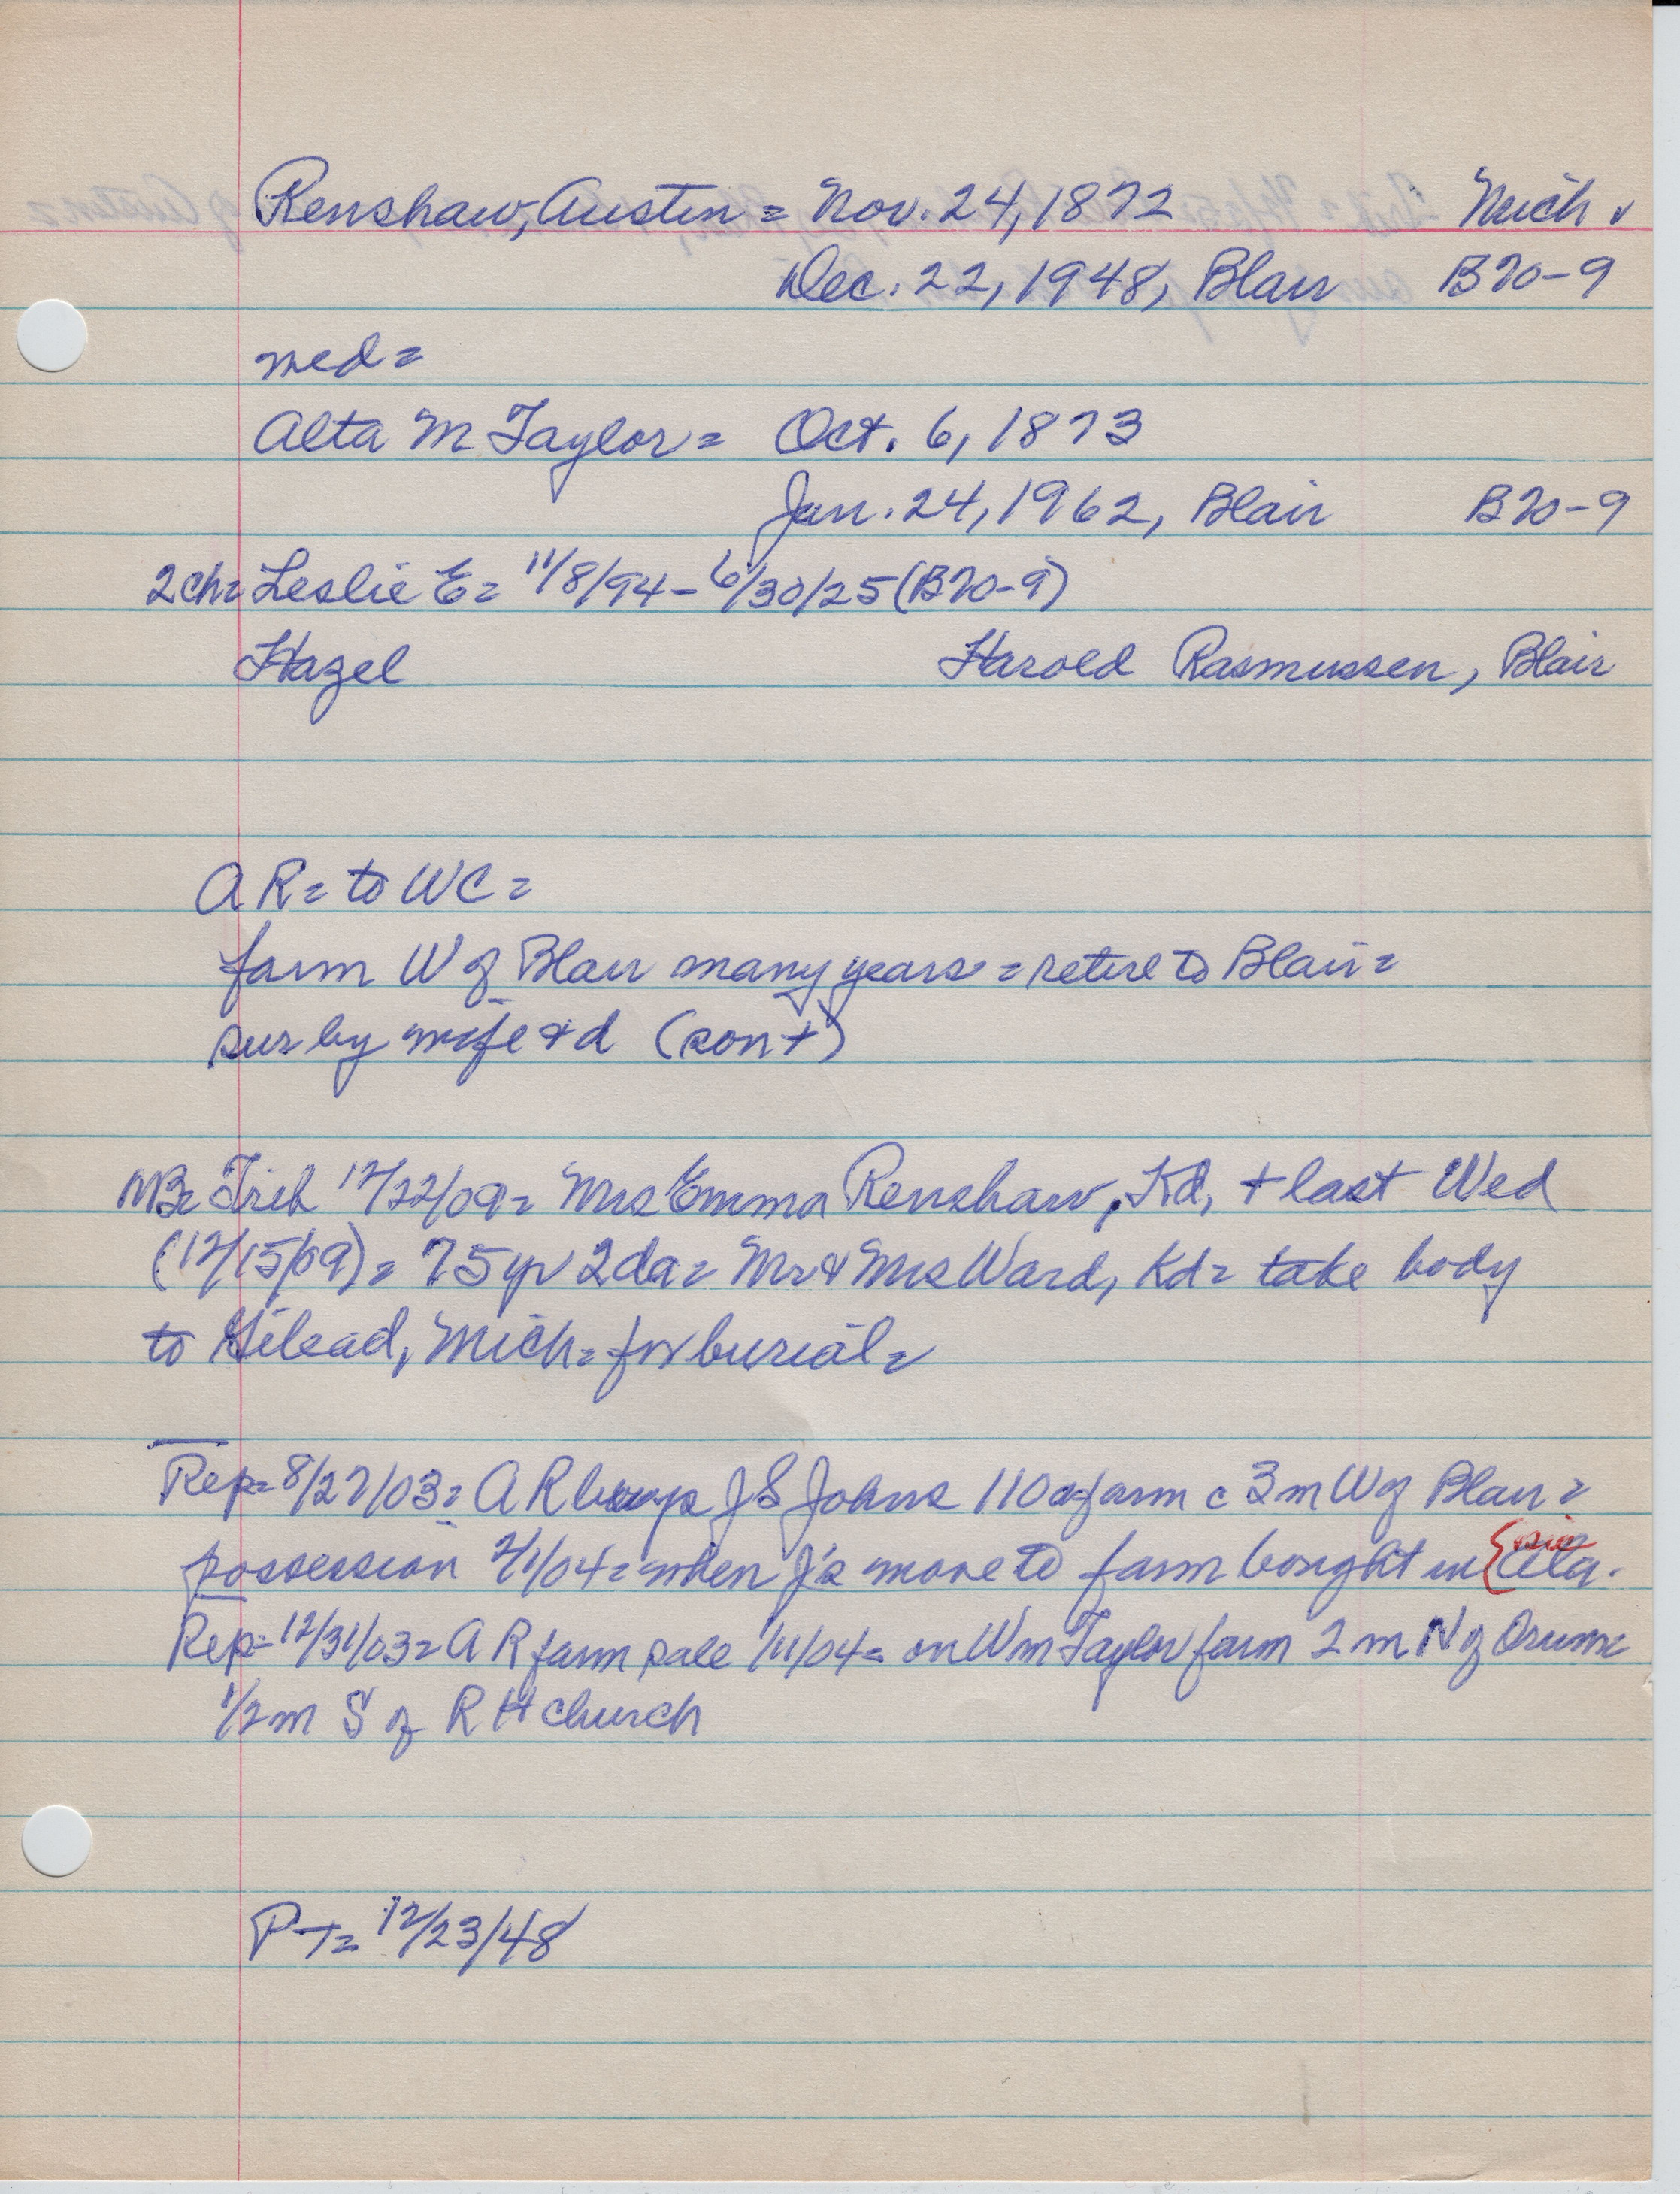 Renshaw, Austin = Nov. 24, 1872 Mich
Dec. 22, 1948, Blair B20-9
med =
Alta M Taylor = Oct. 6, 1873
Jan. 24, 1962, Blair B20-9
2 ch = Leslie E = 11/8/94 - 6/30/25 (B20-9)
Hazel Harold Rasmussen, Blair
A R = to WC =
farm W of Blair many years = retire to Blair =
sur by wife & d (son +)
NB = Trib 12/22/09 = Mrs Emma Renshaw, Kd, + last Wed
(12/15/09) = 75 yr 2 da = Mr & Mrs Ward, Kd = take body
to Gilead, Mich = for burial =
Rep = 8/27/03 = A R buys J S Johns 110 a farm c 3 m W of Blair =
possession 2/1/04 = when J's move to farm bought in
Rep = 12/31/03 = A R farm sale 1/11/04 = on Wm Taylor farm 2 m N of Orum =
1/2 m S of R H church
PT = 12/23/48